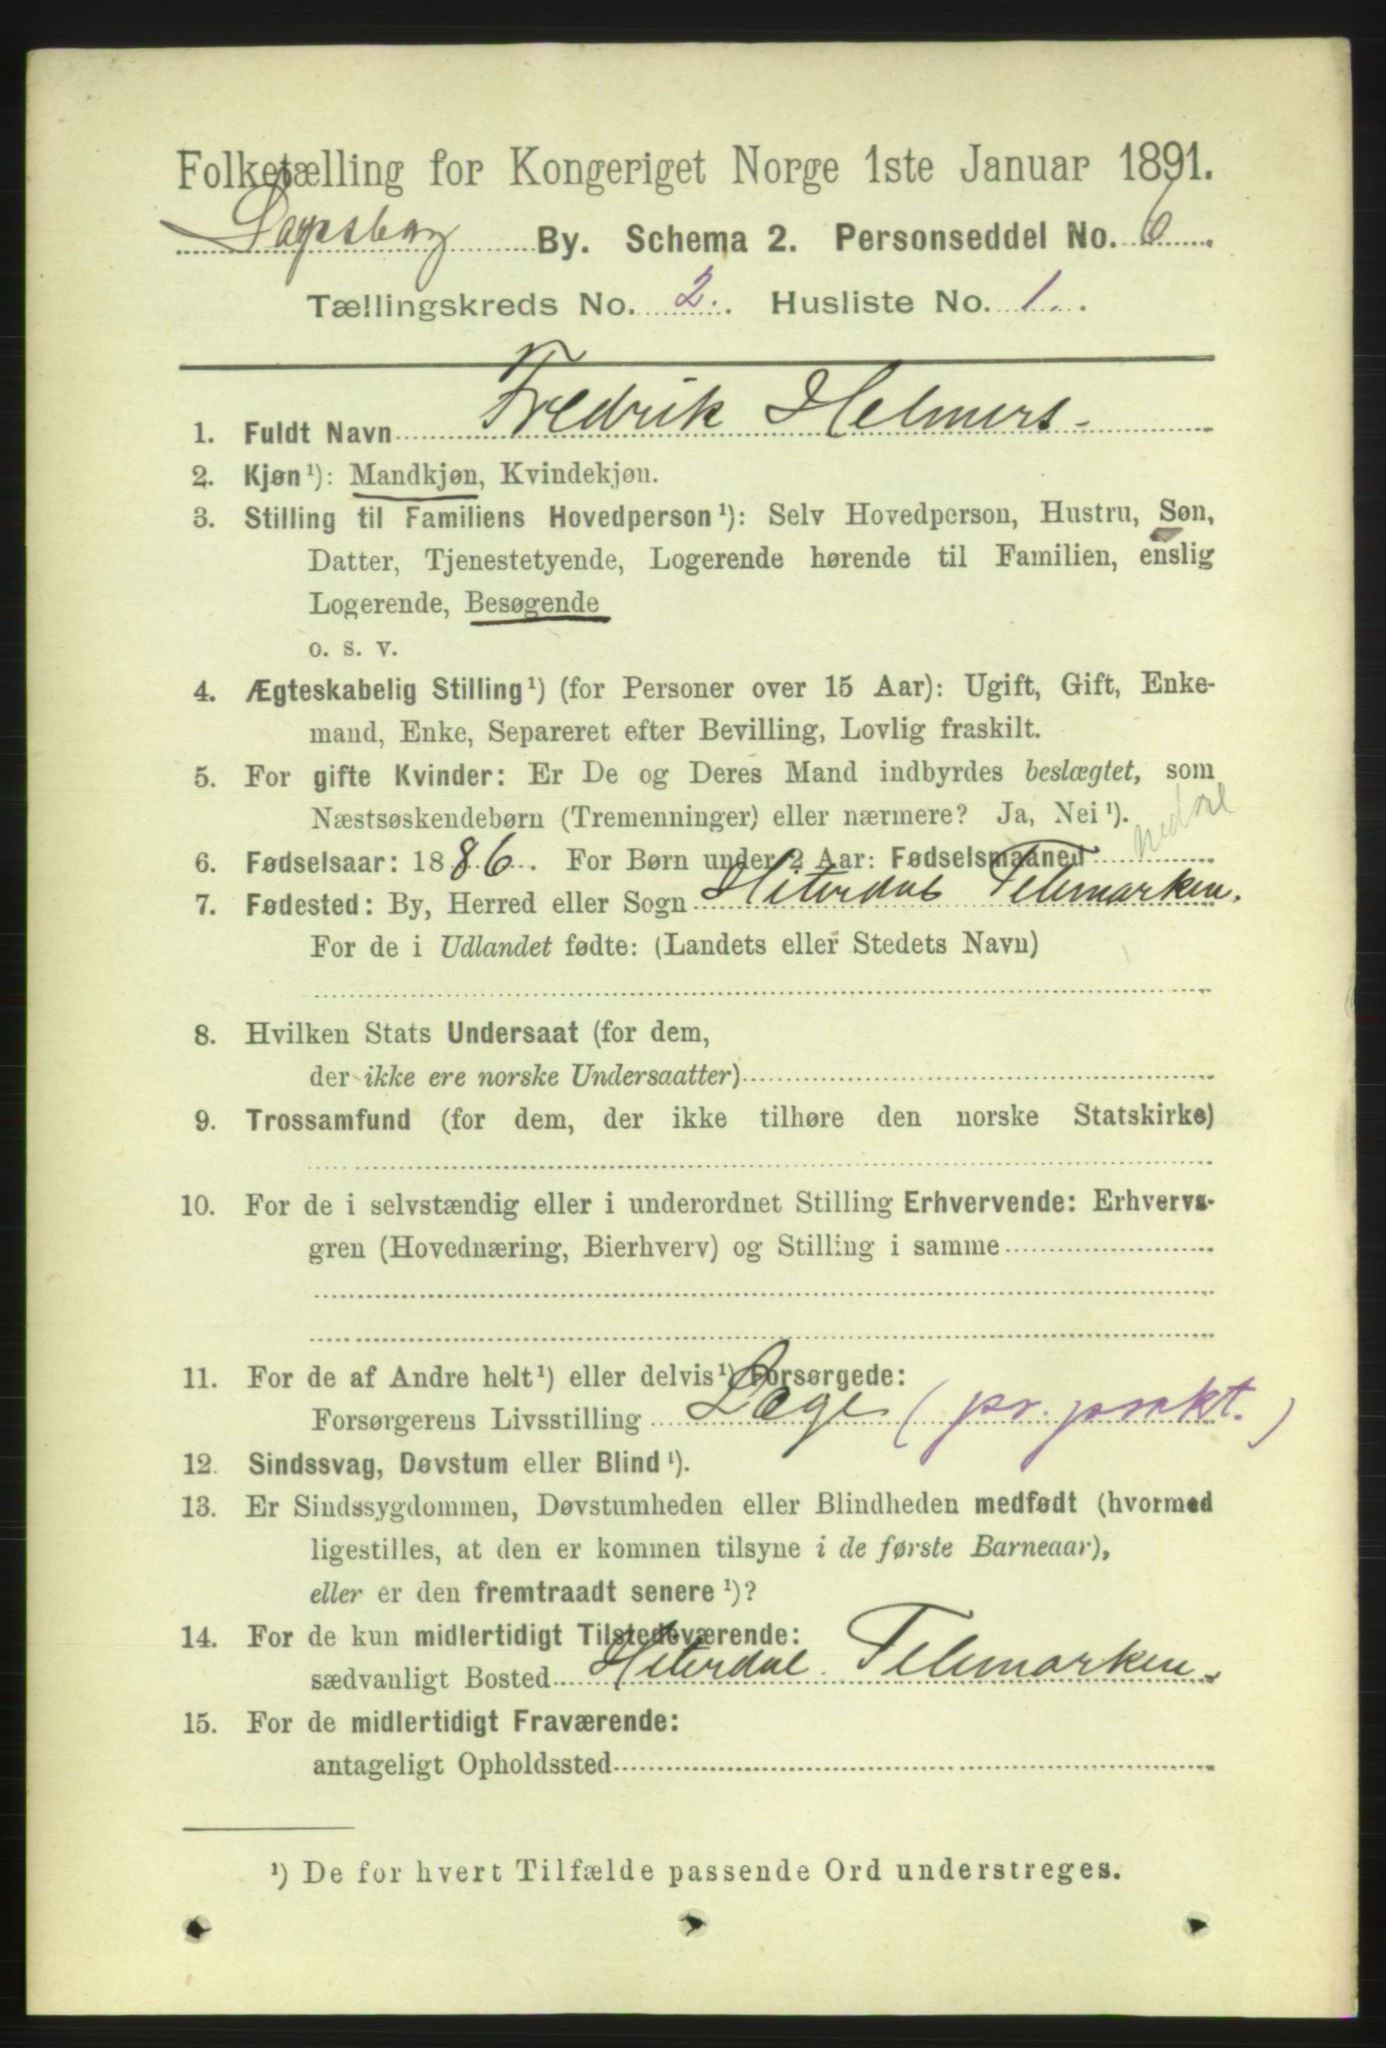 Folketælling for Kongeriget Norge 1ste Januar 1891.
Sarpsborg By. Schema 2. Personseddel No. 6
Tællingskreds No. 2. Husliste No. 1.
1. Fuldt Navn Fredrik Helmers
2. Kjøn ¹): Mandkjøn, Kvindekjøn.
3. Stilling til Familiens Hovedperson ¹): Selv Hovedperson, Hustru, Søn,
Datter, Tjenestetyende, Logerende hørende til Familien, enslig
Logerende, Besøgende
o. s. v.
4. Ægteskabelig Stilling ¹) (for Personer over 15 Aar): Ugift, Gift, Enke-
mand, Enke, Separeret efter Bevilling, Lovlig fraskilt.
5. For gifte Kvinder: Er De og Deres Mand indbyrdes beslægtet, som
Næstsøskendebørn (Tremenninger) eller nærmere? Ja, Nei ¹).
6. Fødselsaar: 1886. For Børn under 2 Aar: Fødselsmaaned
7. Fødested: By, Herred eller Sogn Hiterdal Telemarken.
For de i Udlandet fødte: (Landets eller Stedets Navn)
8. Hvilken Stats Undersaat (for dem,
der ikke ere norske Undersaatter)
9. Trossamfund (for dem, der ikke tilhøre den norske Statskirke)
10. For de i selvstændig eller i underordnet Stilling Erhvervende: Erhvervs-
gren (Hovednæring, Bierhverv) og Stilling i samme
11. For de af Andre helt ¹) eller delvis ¹) Forsørgede:
Forsørgerens Livsstilling Læge (pr. prakt.)
12. Sindssvag, Døvstum eller Blind ¹).
13. Er Sindssygdommen, Døvstumheden eller Blindheden medfødt (hvormed
ligestilles, at den er kommen tilsyne i de første Barneaar),
eller er den fremtraadt senere ¹)?
14. For de kun midlertidigt Tilstedeværende:
sædvanligt Bosted Hiterdal. Telemarken.
15. For de midlertidigt Fraværende:
antageligt Opholdssted
¹) De for hvert Tilfælde passende Ord understreges.